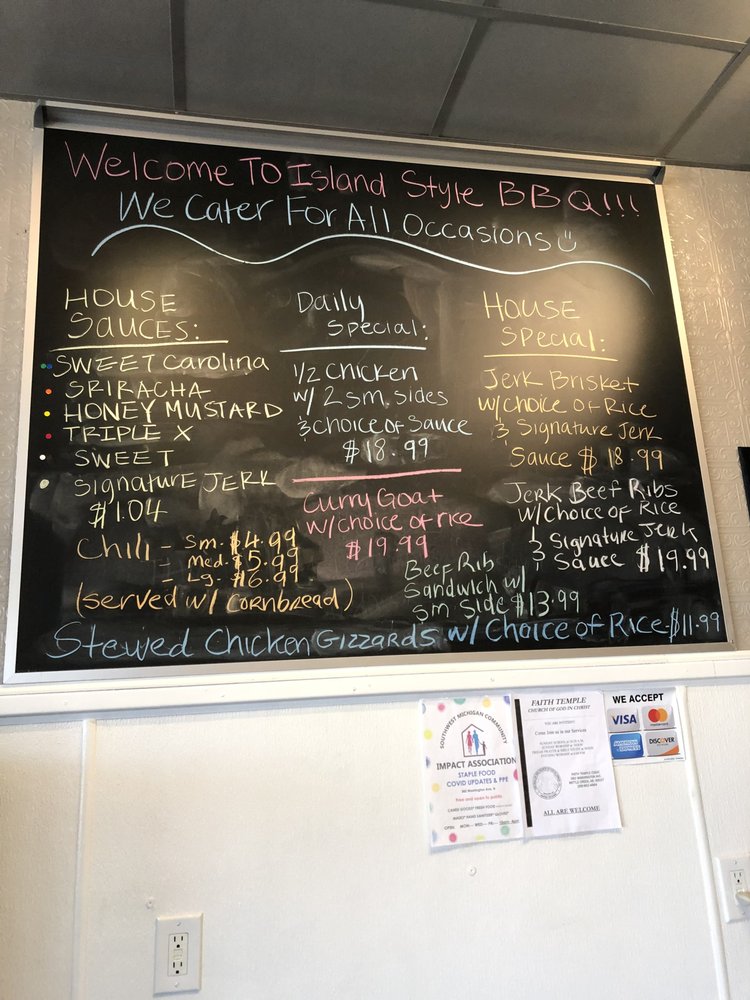 Welcome To Island Style BBQ!!!
We Cater For All Occasions
HOUSE
SAUCES:
SWEET Carolina
SRIRACHA
HONEY MUSTARD
TRIPLE X
SWEET
SIGNATURE JERK
$1.04
Chili - Sm. $4.99
- Med. $5.99
- Lg. $6.99
(served w/ cornbread)
Daily
Special:
1/2 chicken
w/ 2 sm. sides
& choice of Sauce
$18.99
Curry Goat
w/choice of rice
$19.99
HOUSE
Special:
Jerk Brisket
w/choice of Rice
& Signature Jerk
Sauce $18.99
Jerk Beef Ribs
w/Choice of Rice
& Signature Jerk
& Sauce $19.99
Beef Rib
Sandwich w/
sm side $13.99
Stewed Chicken Gizzards w/Choice of Rice-$11.99
SOUTHWEST MICHIGAN COMMUNITY
IMPACT ASSOCIATION
STAPLE FOOD
COVID UPDATES & PPE
FAITH TEMPLE
CHURCH OF GOD IN CHRIST
YOU ARE INVITED!!
Come Join us in our Services
ALL ARE WELCOME
WE ACCEPT
VISA
MasterCard
AMERICAN EXPRESS
DISCOVER